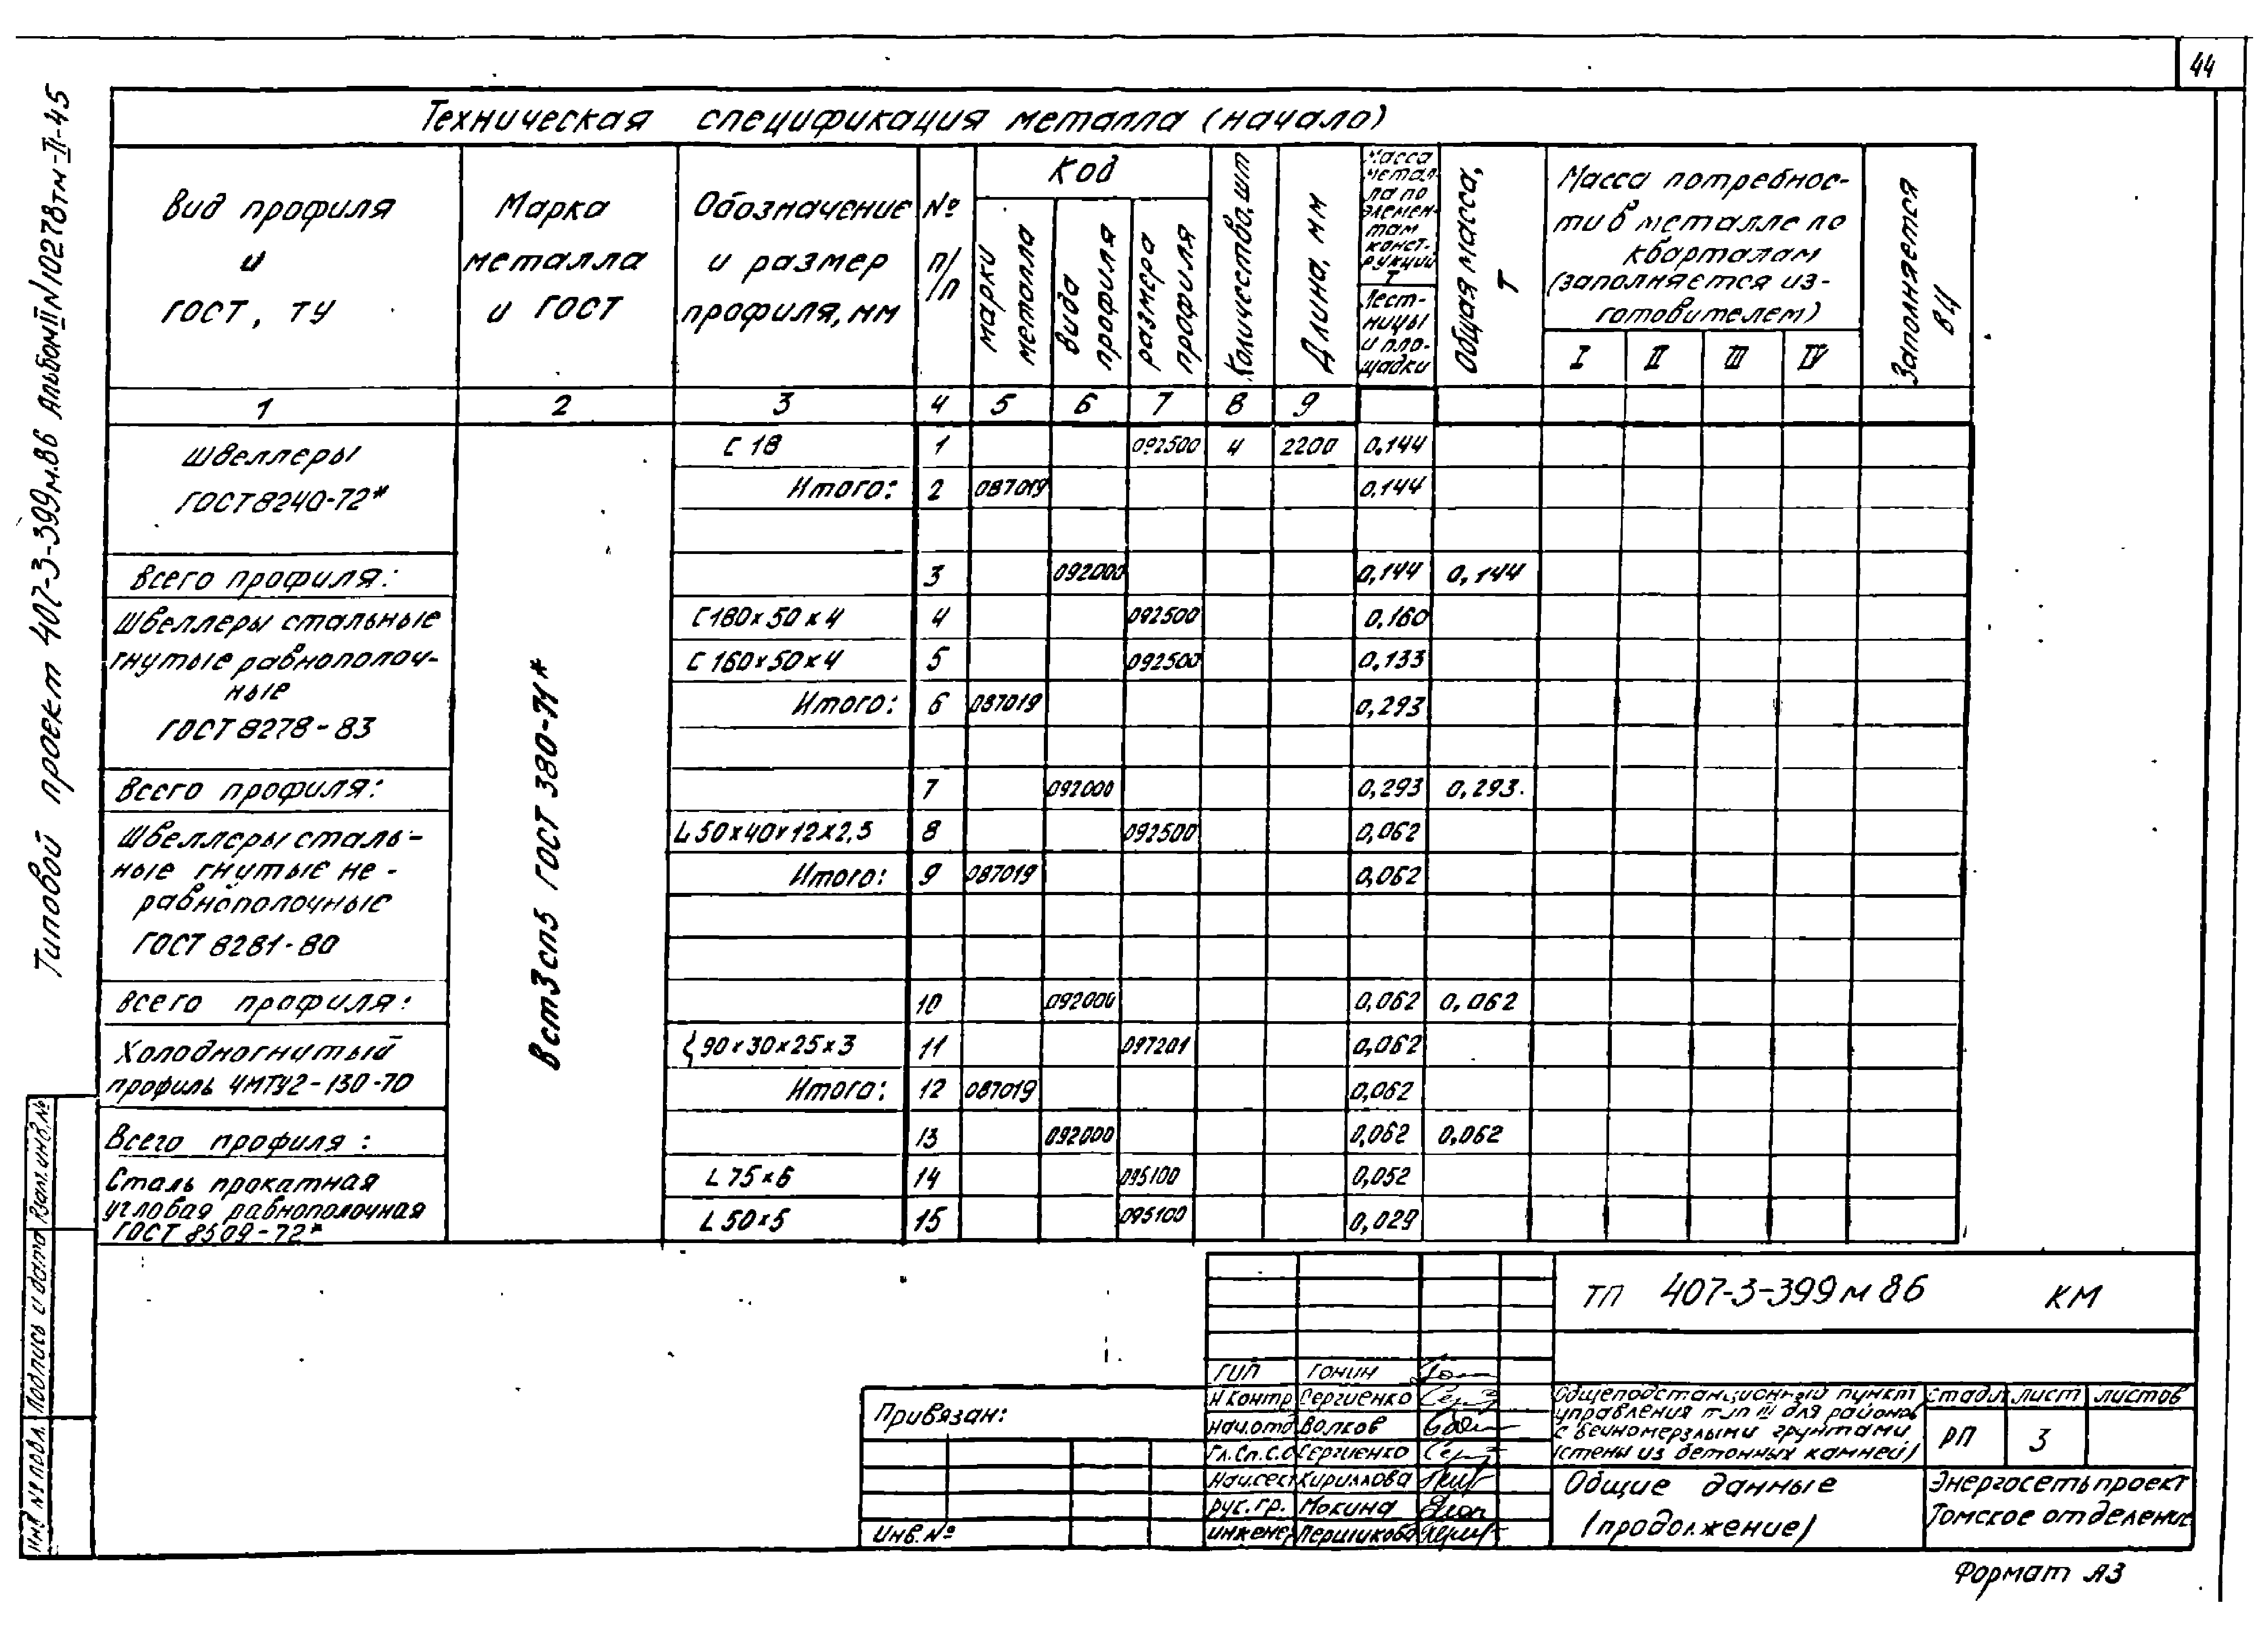 44
Типовой проект 407-3-399м.86 Альбом II N10278тм-II-45
Техническая спецификация металла (начало)
Вид профиля и ГОСТ, ТУ
Марка металла и ГОСТ
Обозначение и размер профиля, мм
№ п/п
Код
марки металла
вида профиля
размера профиля
Количество, шт
Длина, мм
Масса металла по элементам конструкции Т
Лестницы и площадки
Общая масса, Т
Масса потребнос-
ти в металле по
кварталам
(заполняется из-
готовителем)
I II III IV
Заполняется ВЦ
1 2 3 4 5 6 7 8 9
Швеллеры
ГОСТ 8240-72*
ВСт3сп5 ГОСТ 380-71*
[ 18 1 092500 4 2200 0.144
Итого: 2 087019 0,144
Всего профиля: 3 092000 0,144 0,144
Швеллеры стальные
гнутые равнополоч-
ные
ГОСТ 8278-83
[180х50х4 4 092500 0,160
[ 160х50х4 5 092500 0,133
Итого: 6 087019 0,293
Всего профиля: 7 092000 0,293 0,293.
Швеллеры сталь-
ные гнутые не-
равнополочные
ГОСТ 8281-80
L 50х40х12х2,5 8 092500 0,062
Итого: 9 087019 0,062
Всего профиля: 10 092000 0,062 0,062
Холодногнутый
профиль ЧМТУ2-130-70
{ 90х30х25х3 11 097201 0,062
Итого: 12 087019 0,062
Всего профиля: 13 092000 0,062 0,062
Сталь прокатная
угловая равнополочная
ГОСТ 8509-72*
L 75х6 14 095100 0,052
L 50х5 15 095100 0,029
Взам.инв.№
Подпись и дата
Инв № подл.
Привязан:
Инв.№
ГИП Гонин
Н контр Сергиенко
Нач.отд Волков
Гл.Сп.С.О Сергиенко
Нач.сект Кириллова
рук.гр. Мокина
инженер Першикова
ТП 407-3-399м86 КМ
Общеподстанционный пункт
управления тип III для районов
с вечномерзлыми грунтами
(стены из бетонных камней)
стадия лист листов
РП 3
Общие данные
(продолжение)
Энергосетьпроект
Томское отделение
Формат А3